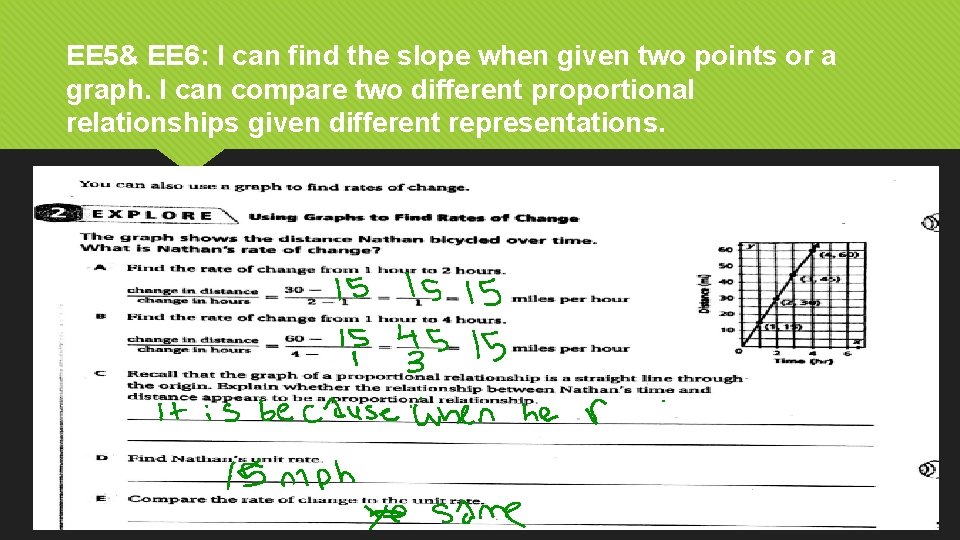 EE 5& EE 6: I can find the slope when given two points or a
graph. I can compare two different proportional
relationships given different representations.
You can also use a graph to find rates of change.
2 EXPLORE Using Graphs to Find Rates of Change
The graph shows the distance Nathan bicycled over time.
What is Nathan's rate of change?
A Find the rate of change from 1 hour to 2 hours.
change in distance / change in hours = 30 - 15 / 2 - 1 = 15 / 1 = 15 miles per hour
B Find the rate of change from 1 hour to 4 hours.
change in distance / change in hours = 60 - 15 / 4 - 1 = 45 / 3 = 15 miles per hour
C Recall that the graph of a proportional relationship is a straight line through
the origin. Explain whether the relationship between Nathan's time and
distance appears to be a proportional relationship.
it is because when he r
D Find Nathan's unit rate.
15 mph
E Compare the rate of change to the unit rate.
same
y
60
50
40
30
20
10
0
2
4
6
Distance (mi)
Time (hr)
(4, 60)
(3, 45)
(2, 30)
(1, 15)